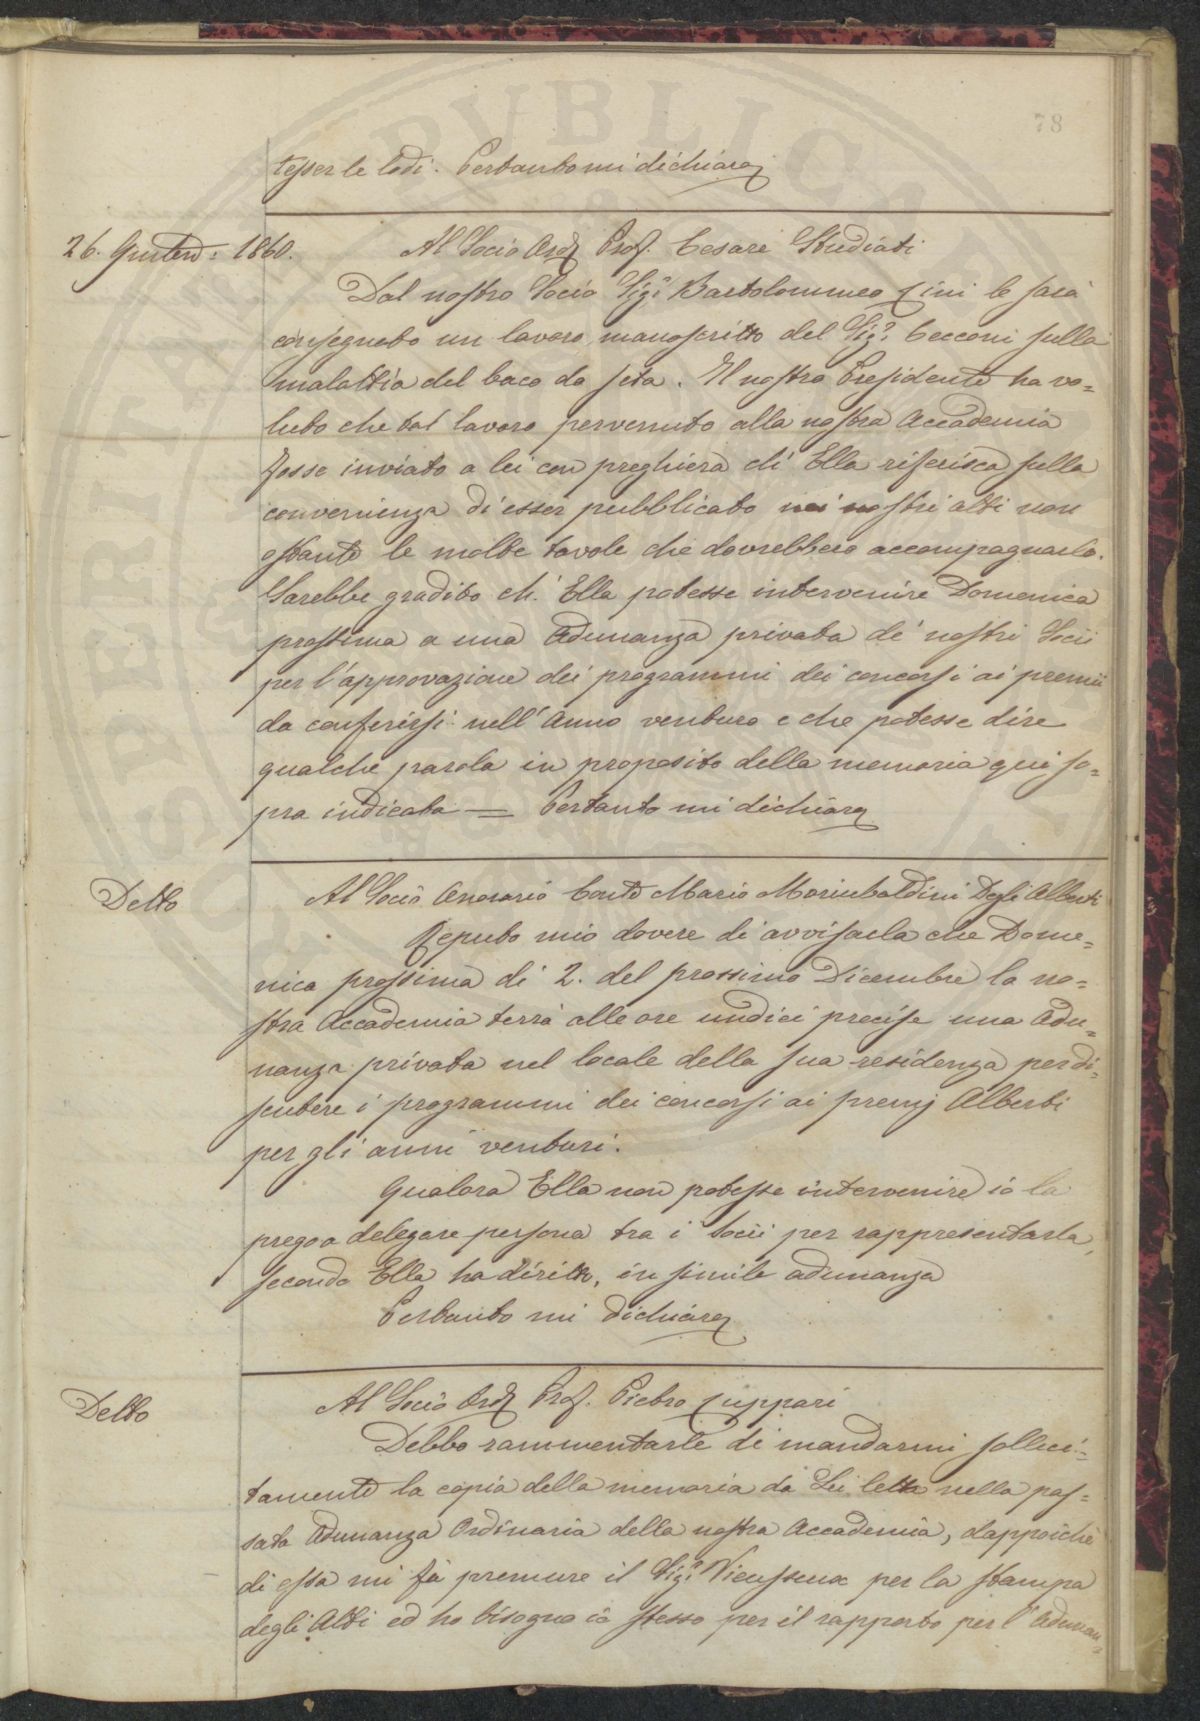 78
tesser le lodi. Pertanto mi dichiaro
26. 1860.
Al Socio Ord. Prof. Cesare Studiati
Dal nostro Socio Sigr. Bartolommeo Cini le sarà
consegnato un lavoro manoscritto del Sigr. Cecconi sulla
malattia del baco da seta. Il nostro Presidente ha vo=
luto che tal lavoro pervenuto alla nostra Accademia
fosse inviato a lei con preghiera di Ella riferisca sulla
convenienza di esser pubblicato nei nostri atti non
ostante le molte tavole che dovrebbero accompagnarlo.
Sarebbe gradito ch'Ella potesse intervenire Domenica
prossima a una Adunanza privata de' nostri Socii
per l'approvazione dei programmi dei concorsi ai premii
da conferirsi nell'Anno venturo e che potesse dire
qualche parola in proposito della memoria qui so=
pra indicata = Pertanto mi dichiaro
Detto
Al Socio Onorario Conte Mario Moriubaldini Degli Alberti
Reputo mio dovere di avvisarla che Dome=
nica prossima di 2. del prossimo Dicembre la no=
stra Accademia terrà alle ore undici precise una Adu=
nanza privata nel locale della sua residenza per di=
scutere i programmi dei concorsi ai premj Alberti
per gli anni venturi.
Qualora Ella non potesse intervenire io la
prego a delegare persona tra i Socii per rappresentarla,
secondo Ella ha diritto, in simile adunanza
Pertanto mi dichiaro
Detto
Al Socio Ord. Prof. Pietro Cuppari
Debbo rammentarle di mandarmi solleci=
tamente la copia della memoria da Lei letta nella pas=
sata Adunanza Ordinaria della nostra Accademia, dappoichè
di essa mi fa premure il Sigr. Vieusseux per la stampa
degli Atti ed ho bisogno io stesso per il rapporto per l'Adunan=